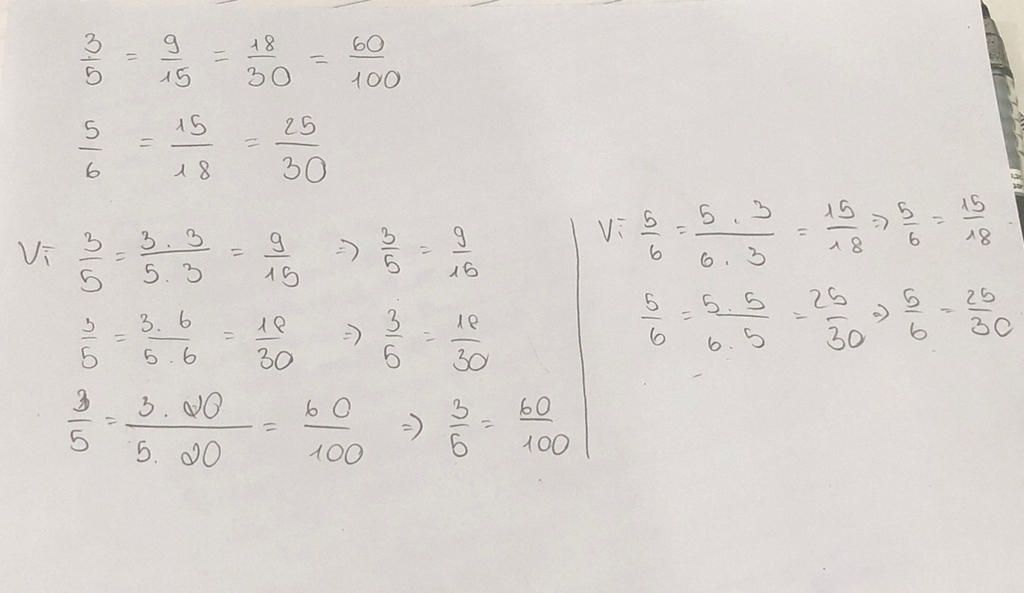 3/5 = 9/15 = 18/30 = 60/100
5/6 = 15/18 = 25/30
Vì 3/5 = 3.3/5.3 = 9/15 => 3/5 = 9/15
3/5 = 3.6/5.6 = 18/30 => 3/5 = 18/30
3/5 = 3.20/5.20 = 60/100 => 3/5 = 60/100
Vì 5/6 = 5.3/6.3 = 15/18 => 5/6 = 15/18
5/6 = 5.5/6.5 = 25/30 => 5/6 = 25/30